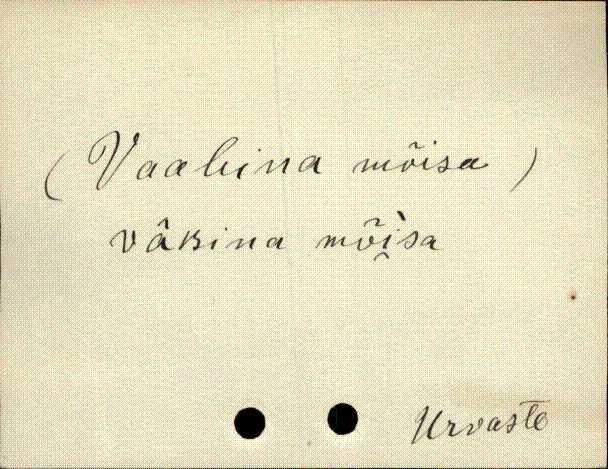 ( Vaabina mõisa )
vâʙina mõi̯sa
Urvaste